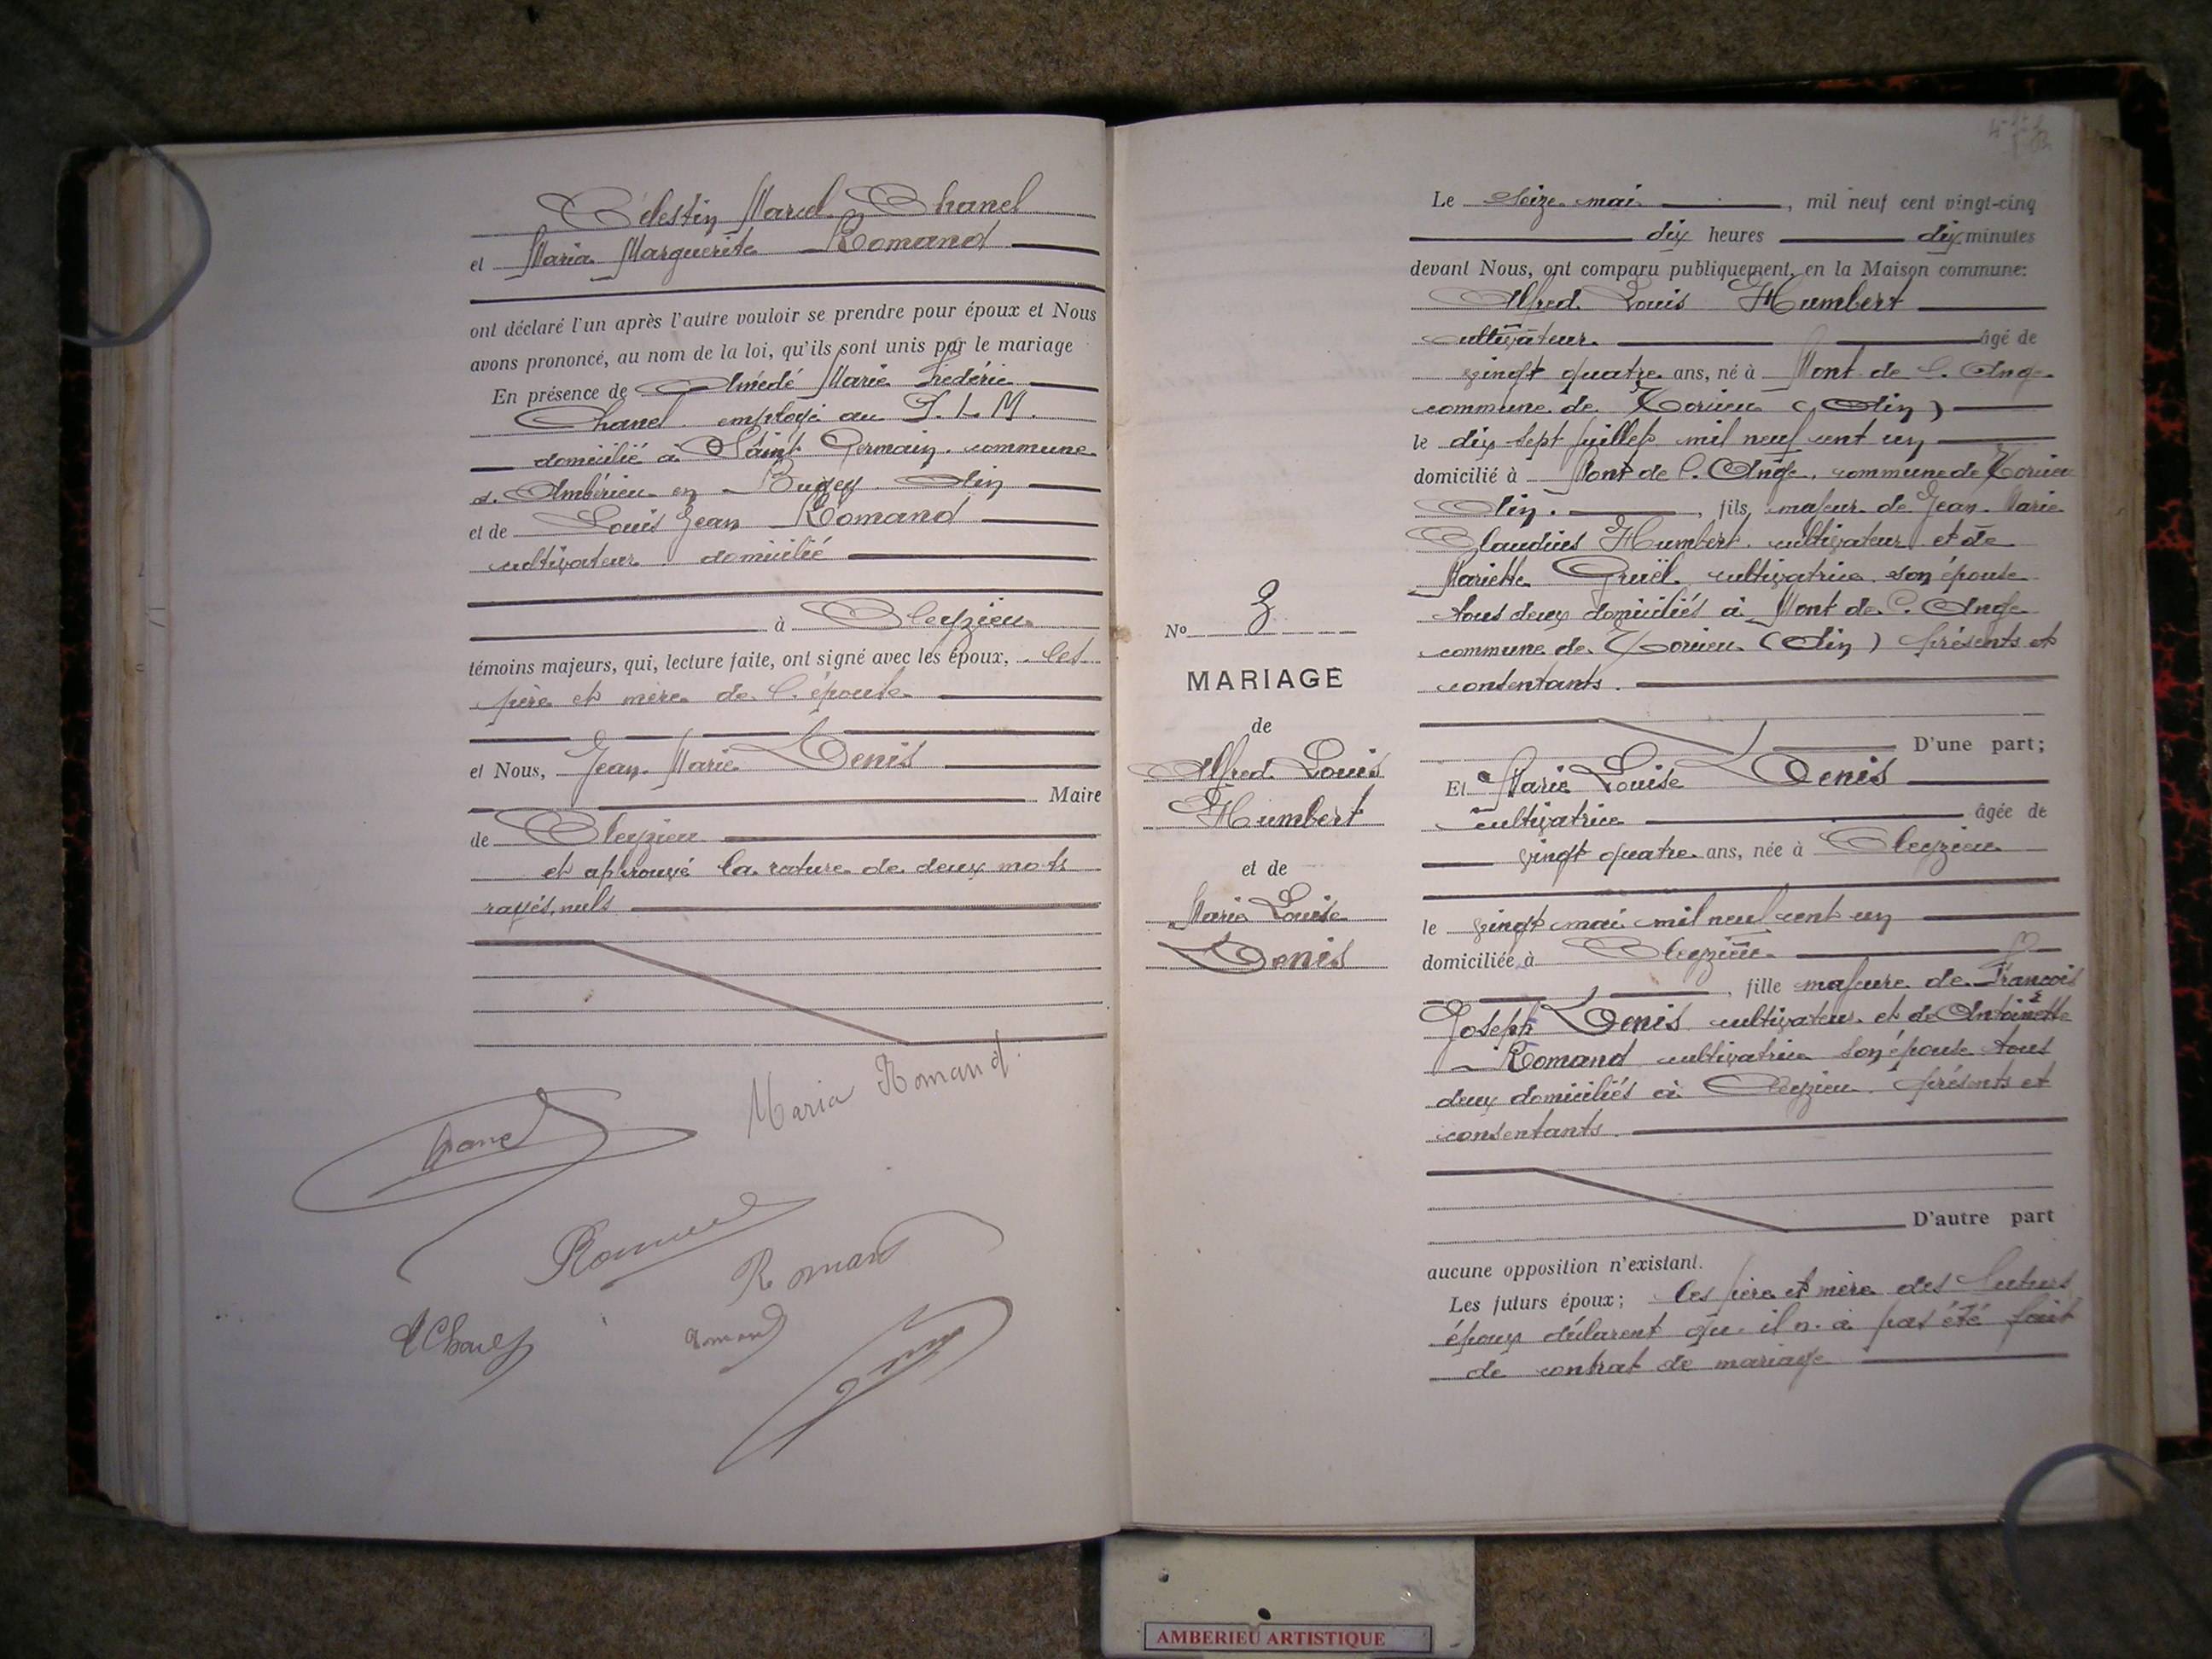 Célestin Marcel Chanel
et Maria Marguerite Romand
ont déclaré l'un après l'autre vouloir se prendre pour époux et Nous
avons prononcé, au nom de la loi, qu'ils sont unis par le mariage
En présence de Amédé Marie Frédéric
Chanel employé au P. L. M.
domicilié à Saint Germain commune
d'Ambérieu en Bugey Ain
et de Louis Jean Romand
cultivateur domicilié
à Cleyzieu
témoins majeurs, qui, lecture faite, ont signé avec les époux, les
père et mère de l'épouse
et Nous, Jean Marie Denis
Maire
de Cleyzieu
et approuvé la rature de deux mots
rayés nuls
Maria Romand
Chanel
Romand
Romand
Romand
Le seize mai, mil neuf cent vingt-cinq
dix heures dix minutes
devant Nous, ont comparu publiquement, en la Maison commune:
Alfred Louis Humbert
cultivateur âgé de
vingt quatre ans, né à Mont de l'Ange
commune de Torcieu (Ain)
le dix sept juillet mil neuf cent un
domicilié à Mont de l'Ange, commune de Torcieu
Ain, fils majeur de Jean Marie
Claudius Humbert cultivateur et de
Mariette Gruël cultivatrice son épouse
tous deux domiciliés à Mont de l'Ange
commune de Torcieu (Ain) présents et
consentants.
D'une part;
Et Marie Louise Denis
cultivatrice âgée de
vingt quatre ans, née à Cleyzieu
le vingt mai mil neuf cent un
domiciliée à Cleyzieu
, fille majeure de François
Joseph Denis cultivateur et de Antoinette
Romand cultivatrice son épouse tous
deux domiciliés à Cleyzieu présents et
consentants.
D'autre part
aucune opposition n'existant.
Les futurs époux; les père et mère des futurs
époux déclarent qu'il n'a pas été fait
de contrat de mariage
No 3
MARIAGE
de
Alfred Louis
Humbert
et de
Marie Louise
Denis
AMBERIEU ARTISTIQUE